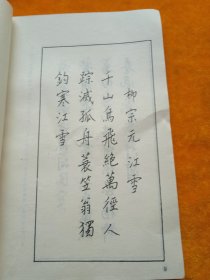 柳宗元江雪
千山鸟飛絶萬徑人
踪滅孤舟蓑笠翁獨
釣寒江雪